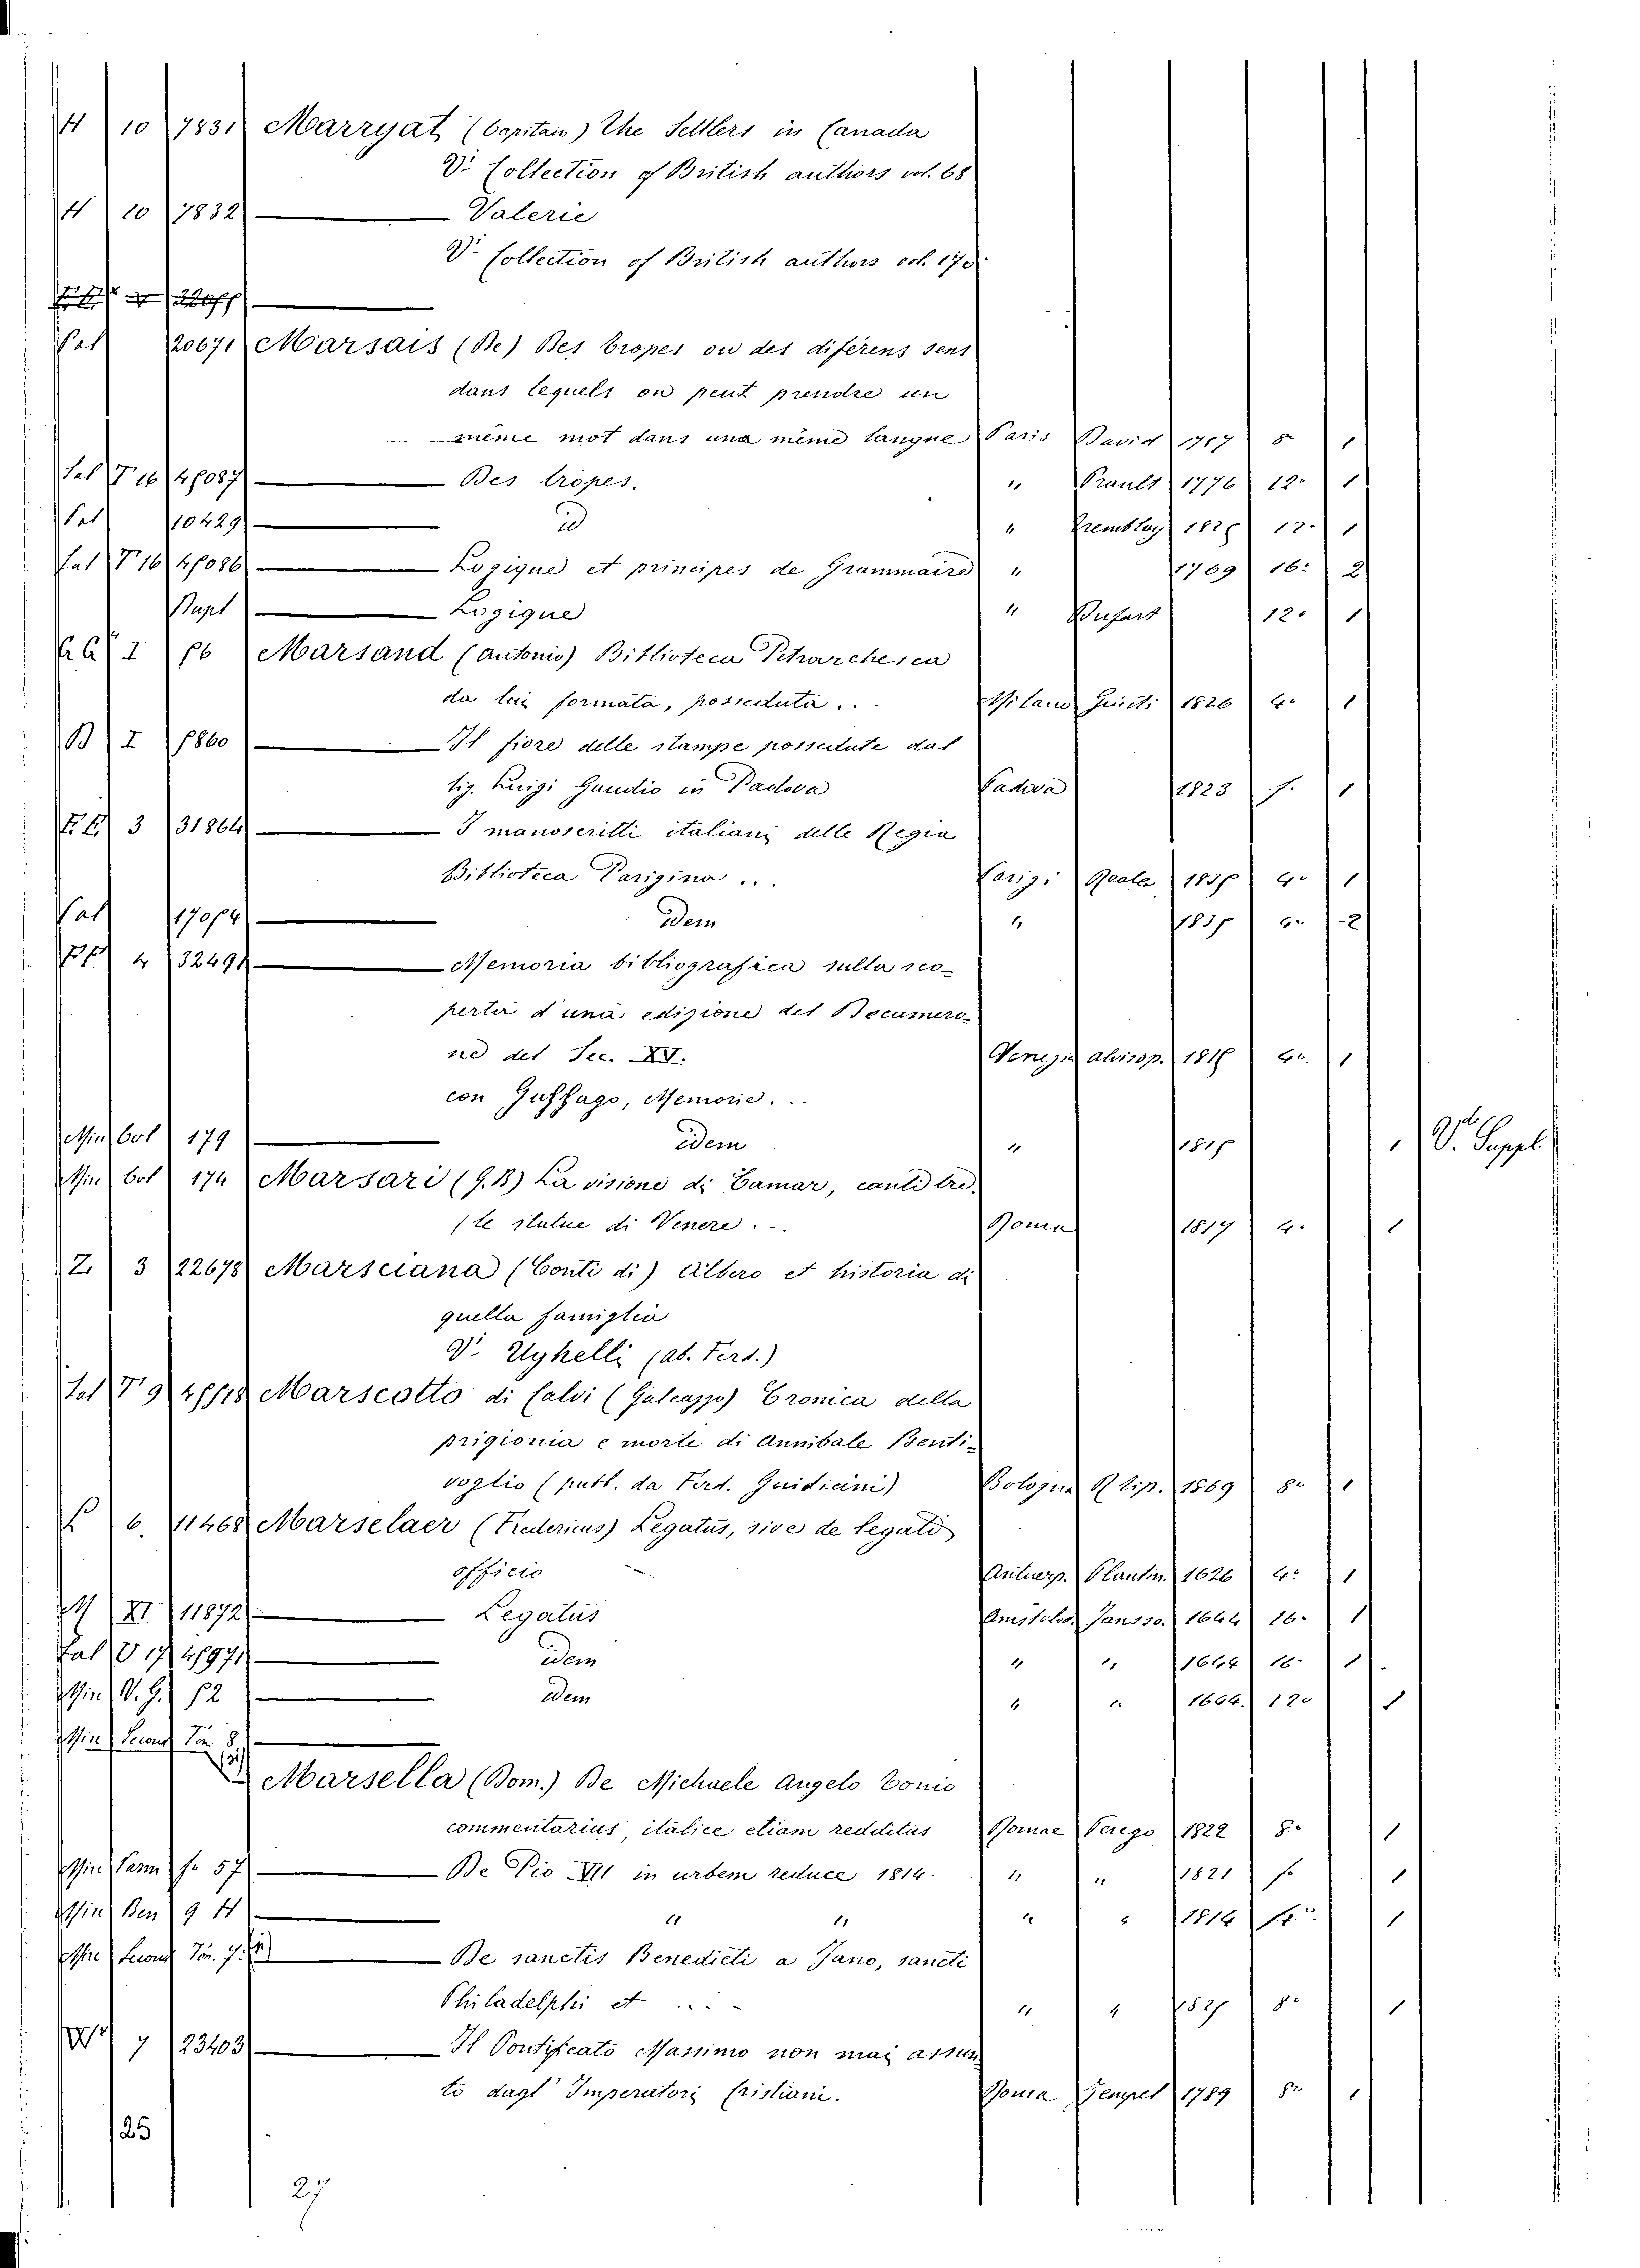 H 10 7831 Marryat (Capitain) The Settlers in Canada
V. Collection of British authors vol. 68
H 10 7832 — Valerie
V. Collection of British authors vol. 170
Sal 20671 Marsais (De) Des tropes ou des diférens sens
dans lequels on peut prendre un
même mot dans una même langue Paris David 1757 8° 1
Sal T 16 48087 — Des tropes. " Prault 1776 12° 1
Sal 10429 — id " Tremblay 12° 1
Sal T 16 48086 — Logique et principes de Grammaire " 1769 16° 2
Dupl — Logique " Dufart 12° 1
I 86 Marsand (Antonio) Biblioteca Petrarchesca
da lui formata, posseduta... Milano Giusti 1826 4° 1
B I 1860 — Il fiore delle stampe possedute dal
sig. Luigi Gaudio in Padova Padova 1823 f. 1
3 31864 — I manoscritti italiani delle Regia
Biblioteca Parigina... Parigi Reale 1835 4° 1
Sal 17084 — idem " 1835 4° 2
4 32491 — Memoria bibliografica sulla sco-
perta d'una edizione del Decamero-
ne del Sec. XV. Venezia alvisop. 1815 4° 1
con Gussago, Memorie...
Min bol 179 — idem " 1815 1 V. Suppl.
Min bol 174 Marsari (G.B) La visione di Camar, canti tre.
(le statue di Venere... Roma 1817 4. 1
Z. 3 22678 Marsciana (Conti di) Albero et historia di
quella famiglia
V. Ughelli (ab. Ferd.)
Sal T 9 Marscotto di Calvi (Galeazzo) Cronica della
prigionia e morte di Annibale Benti-
voglio (pubb. da Ferd. Guidicini) Bologna R tip. 1869 8° 1
6. 11468 Marselaer (Fredericus) Legatus, sive de legati
officio Antuerp. Plantin. 1626 4° 1
M XI 11872 — Legatus Amstelod. Jansso. 1644 16° 1
Sal V 17 48971 — idem " " 1644 16° 1
Min V. G. 52 — idem " " 1644. 12° 1
Min Tom. 8
Marsella (Dom.) De Michaele Angelo Conio
commentarius, italice etiam redditus Romae Perego 1822 8° 1
Min Parm fo 57 — De Pio VII in urbem reduce 1814. " " 1821 fo 1
Min Ben 9 H — " " " " 1814 1
Min Tom. 7. — De sanctis Benedicti a Jano, sancti
Philadelphi et .... " " 8° 1
7 23403 — Il Pontificato Massimo non mai assun
to dagl' Imperatori Cristiani. Roma Zempel 1789 8° 1
25
27